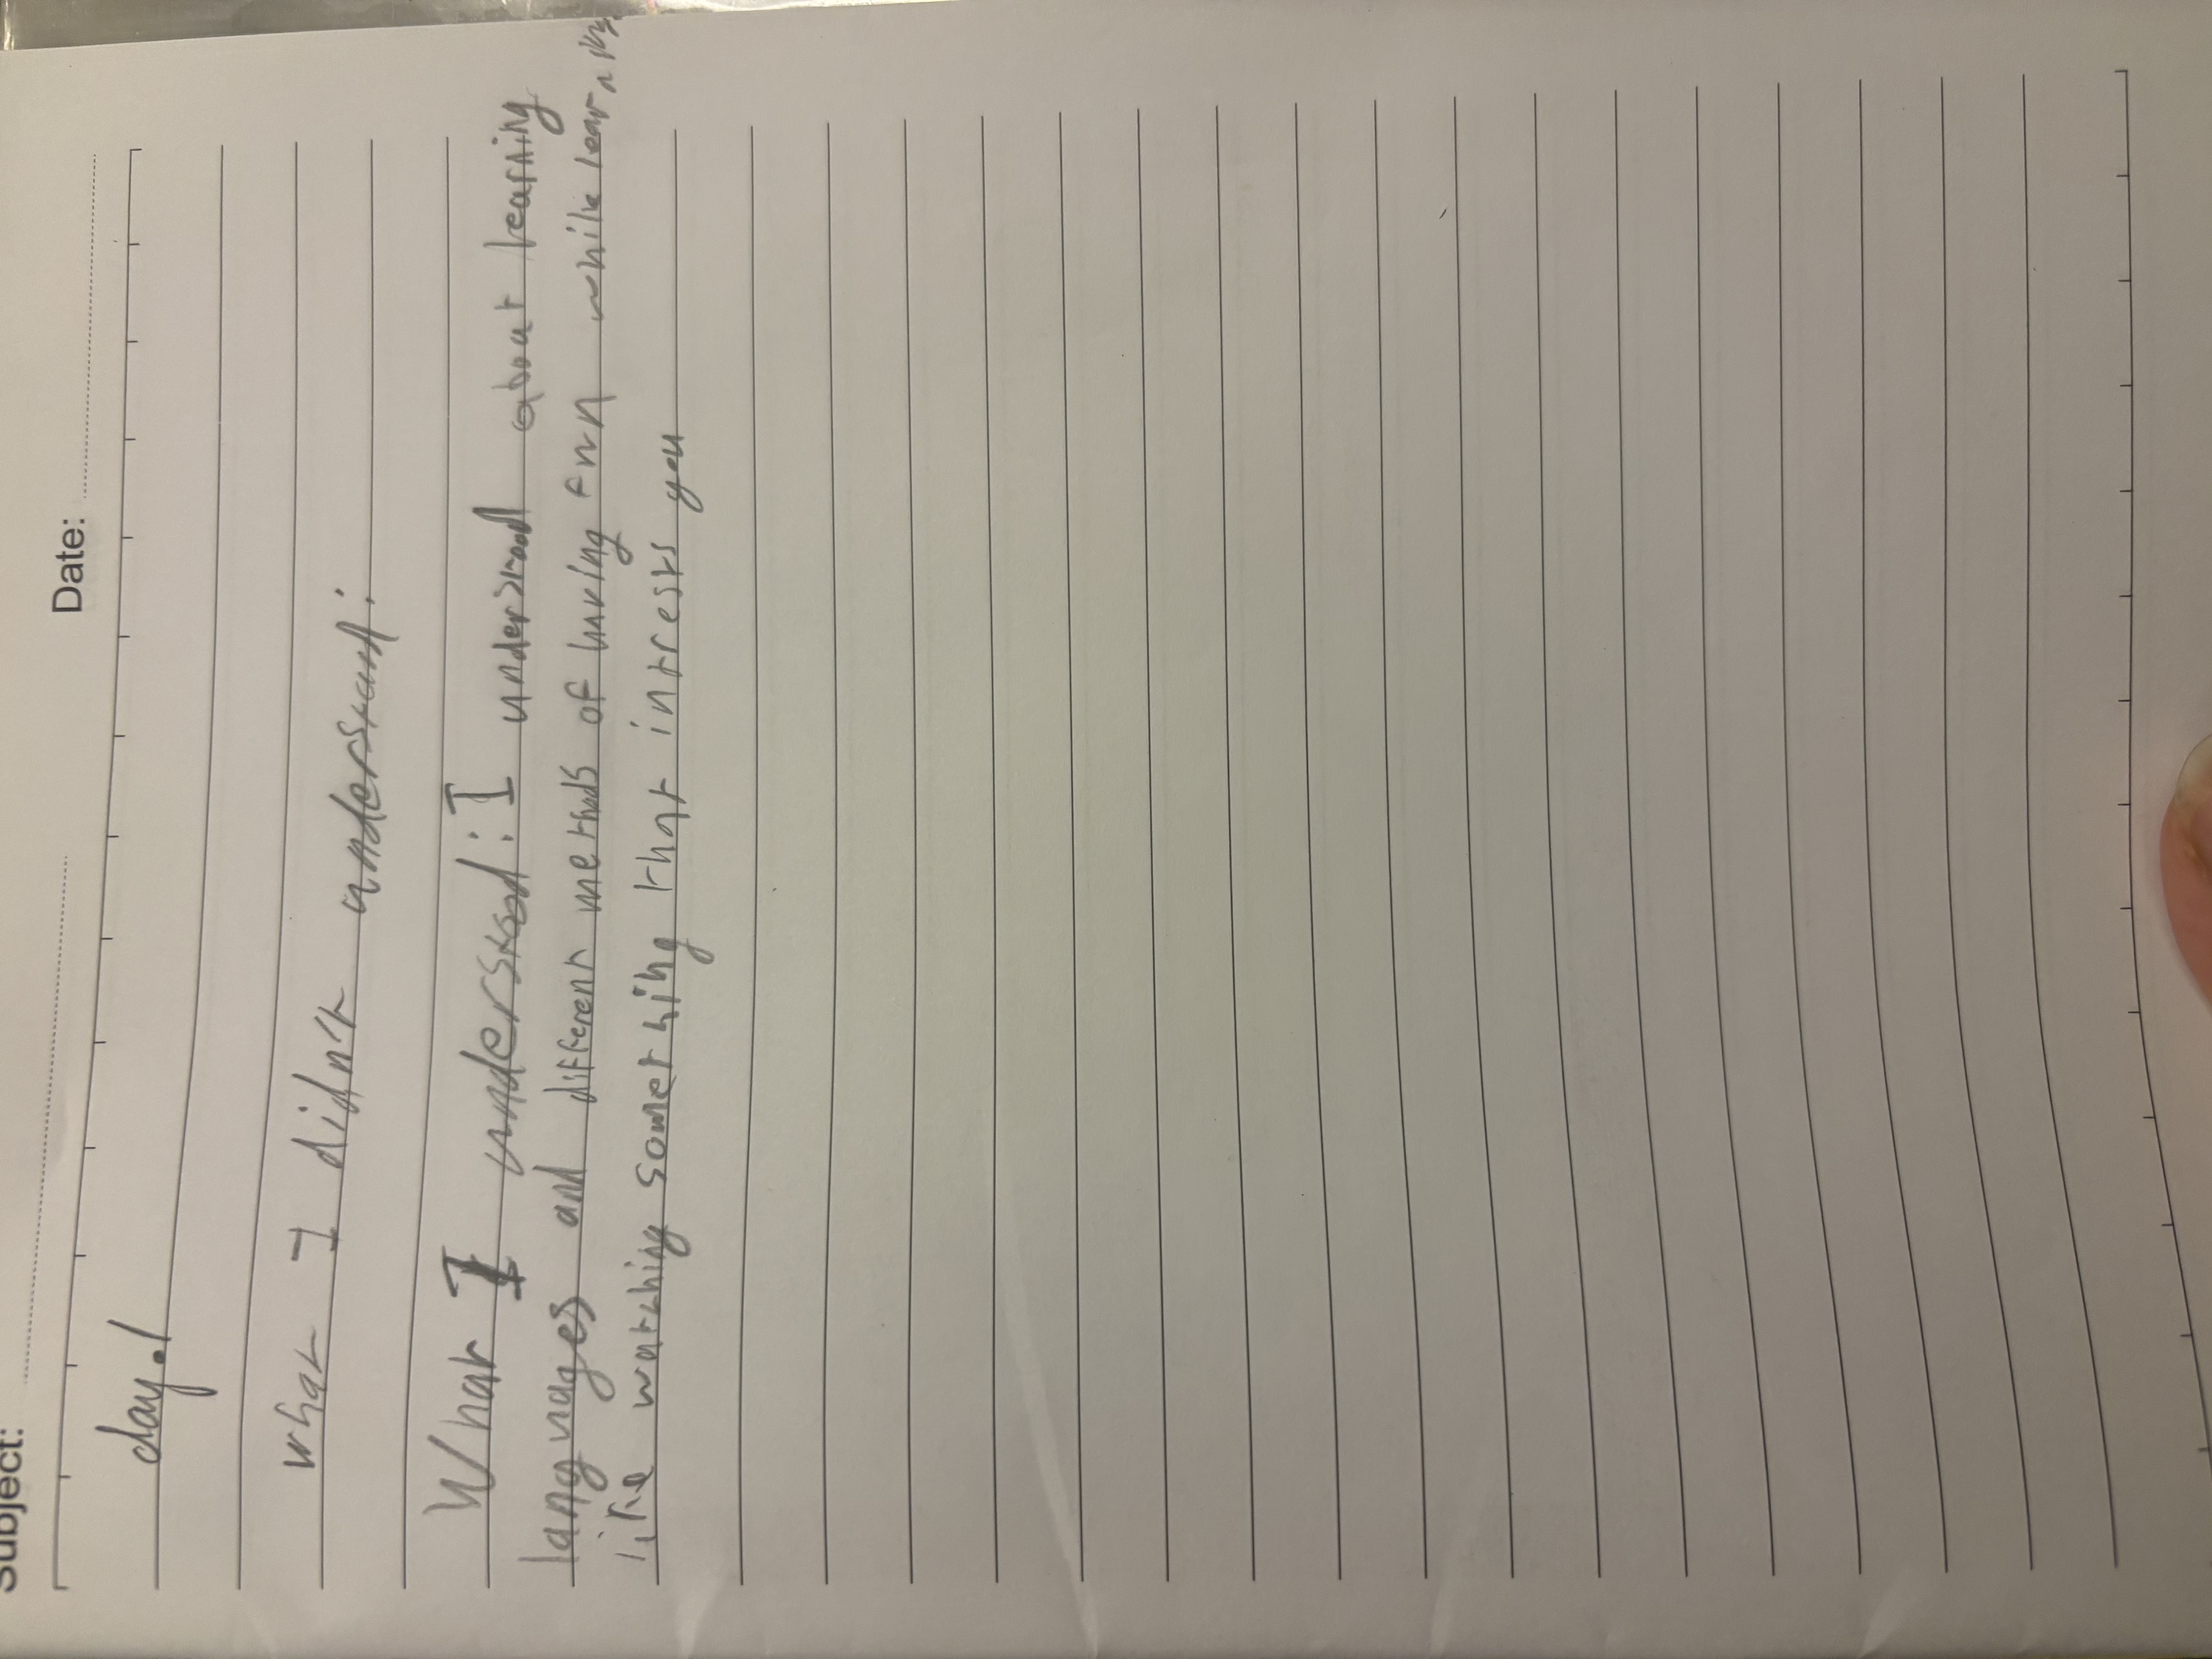 Subject: Date:
day.1
what I didn't understand:
What I understood: I understood about learning
languages and different methods of having fun while learning
like watching something that intrests you